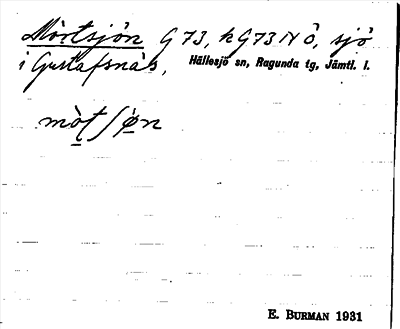 Mörtsjön G 73, k G73 N Ö, sjö
i Gustafsnäs, Hällesjö sn, Ragunda tg, Jämtl. l.
E. BURMAN 1931